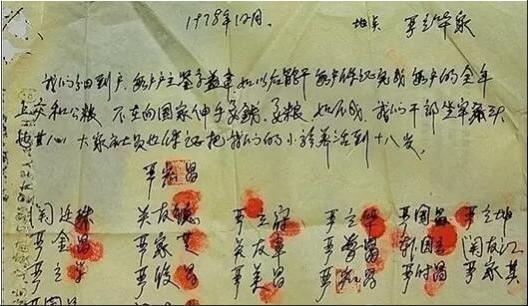 1978年12月. 地点 严立华家
我们分田到户,每户户主签字盖章,如以后能干每户保证完成每户的全年
上交和公粮 不在向国家伸手要钱要粮 如不成 我们干部坐牢杀头
也甘心 大家社员也保证把我们的小孩养活到十八岁。
严宏昌
关廷珠 关友德 严立符 严立华 严国昌 严立坤
严金昌 严家芝 关友章 严学昌 韩国云 关友江
严立学 严俊昌 严美昌 严付昌 严家其